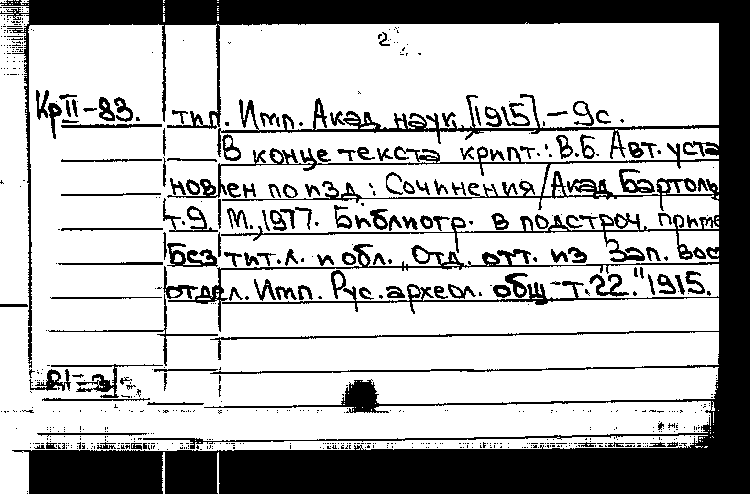 2
КрII-83. тип. Имп. Акад. наук, [1915]. - 9с.
В конце текста крипт.: В.Б. Авт. уста
новлен по изд.: Сочинения / Акад. Бартоль
т.9. М., 1977. Библиогр. в подстроч. приме
Без тит.л. и обл. Отд. отт. из "Зап. Вос
отдел. Имп. Рус. археол. общ-" т."22." 1915.